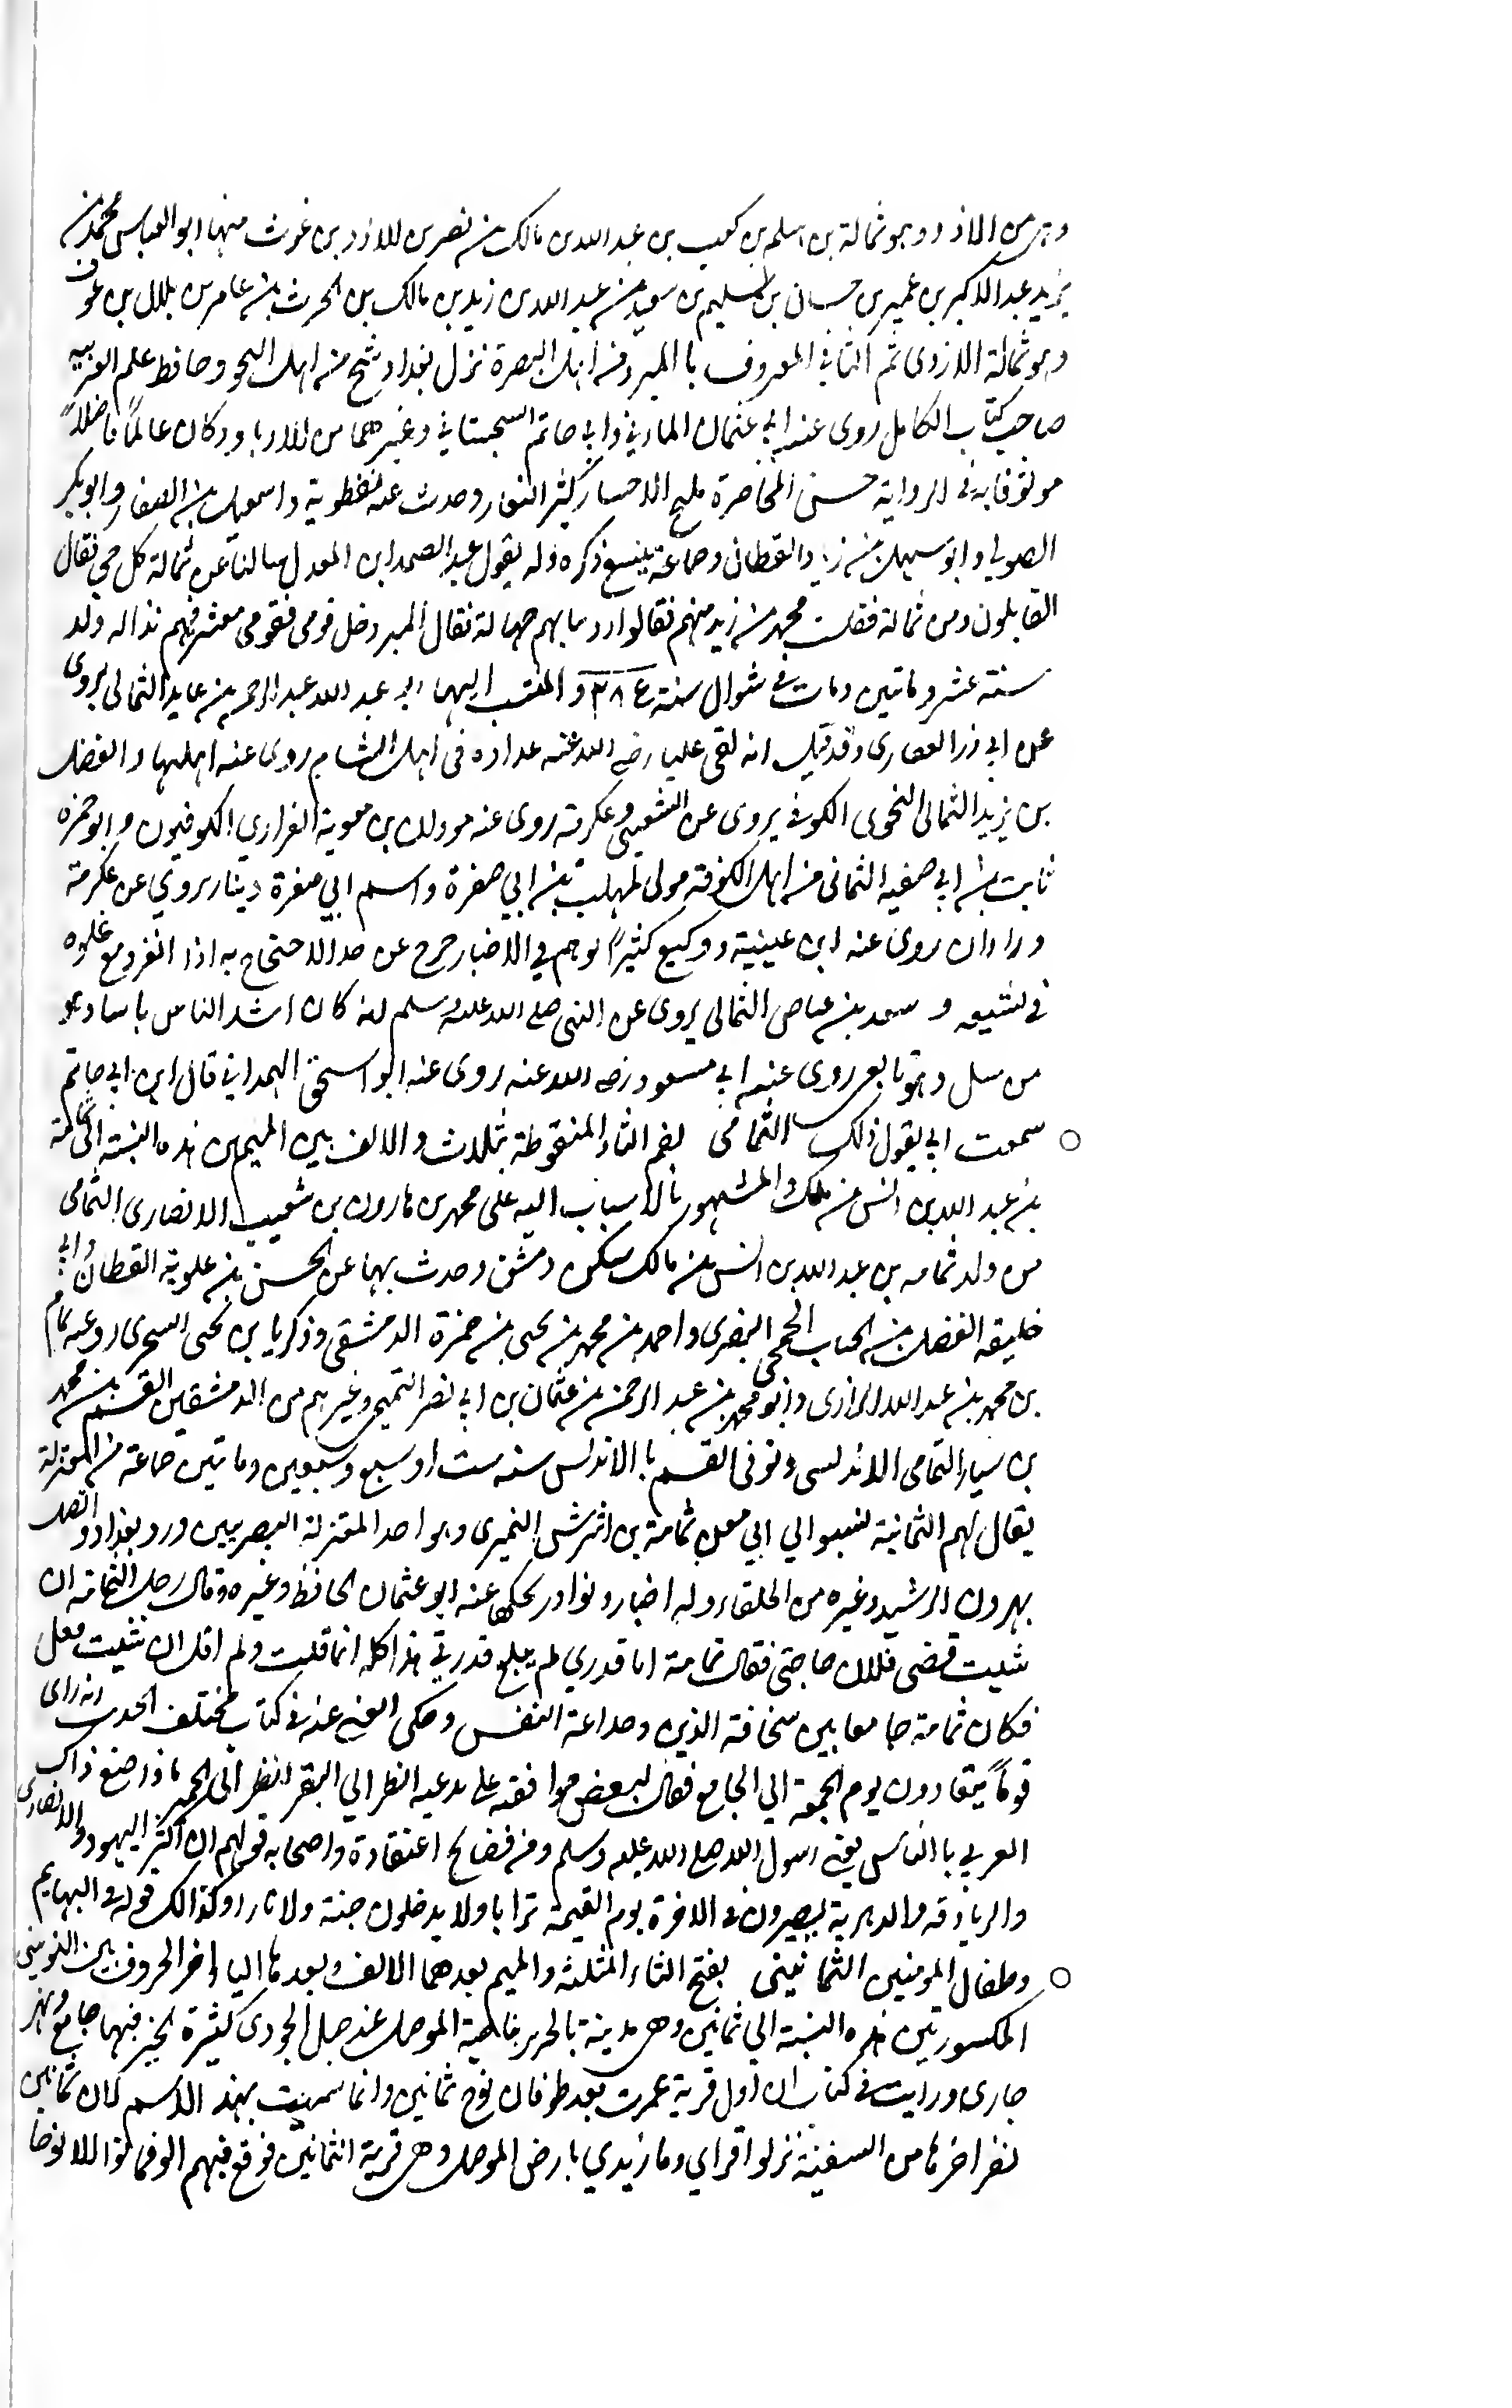 وهو من الازد وهو ثمالة بن اسلم بن كعب بن عبد الله بن مالك بن نصر بن الازد بن غوث منها ابو العباس محمد بن
يزيد عبد الاكبر بن عمير بن حسان بن سليم بن سعيد بن عبد الله بن زيد بن مالك بن الحرث بن عامر بن بلال بن عوف
وهو ثمالة الازدى ثم الثاني المعروف با المبرد من اهل البصرة نزل بغداد شيخ من اهل النحو وحافظ علم العربيه
صاحب كتاب الكامل روى عنه ابي عثمان المازني وابي حاتم السجستاني وغيرهما من الادبا وكان عالمًا فاضلاً
موثوقا به في الرواية حسن المحاضرة مليح الاخبار كثير النوادر وحدث عنه نفطوية واسمعيل بن الصفار وابوبكر
الصولي وابو سهل بن زياد القطان وجماعة يتسع ذكره وله يقول عبد الصمد ابن المعدل سالنا عن ثمالة كل حي فقال
القايلون ومن ثمالة فقلت محمد بن زيد منهم فقالوا زدنا بهم جهالة فقال المبرد خل قومى فقومى معشر فيهم نذاله ولد
سنة عشر وماتين ومات في شوال سنة ٢٨٤ و المنتسب اليها ابو عبد الله عبد الرحمن بن عايد الثمالى يروى
عن ابي ذر الغفارى وقد قيل انه لقى عليا رضي الله عنه عداده فى اهل الشام روى عنه اهلها والفضل
بن يزيد الثمالى النحوى الكوفي يروى عن الشعبي وعكرمة روى عنه مروان بن معوية الفزاري الكوفيون وابو حمزه
ثابت بن ابي صفيه الثمانى من اهل الكوفة مولى المهلب بن ابي صفرة واسم ابي صفرة دينار يروي عن عكرمة
وزاذان روى عنه ابن عيينة ووكيع كثيرًا لوهم في الاخبار خرج عن حد الاحتجاج به اذا انفرد مع غلوه
في تشيعه و سعد بن عياض الثمالى يروى عن النبى صلى الله عليه وسلم انه كان اشد الناس باسا وهو
مرسل وهو تابعي روى عنه ابي مسعود رضي الله عنه روى عنه ابو اسحق الهمداني قال ابن ابي حاتم
سمعت ابي يقول ذلك الثمامى بضم الثاء المنقوطة بثلاث والالف بين الميمين هذه النسبة الى ثمامة
بن عبد الله بن انس بن ملك والمشهور بالانساب اليه على محمد بن هارون بن شعيب الانصارى الثمامى
من ولد ثمامه بن عبد الله بن انس بن مالك سكن دمشق وحدث بها عن الحسن بن علوية القطان وابي
خليفه الفضل بن الحباب الجمحى البصرى واحمد بن محمد بن يحى بن حمزة الدمشقى وذكريا بن يحى السجزى روى عنه تمام
بن محمد بن عبد الله الرازى وابو محمد بن عبد الرحمن بن عثمان بن ابي نصر التميمى وغيرهم من الدمشقين القسم بن محمد
بن سيار الثمامى الاندلسى وتوفى القسم با الاندلس سنه ست او سبع وسبعين وماتين جماعة من المعتزلة
يقال لهم الثمانية نسبوا الي ابي معن ثمامة بن اشرس النميرى وهو احد المعتزلة البصريين ورد بغداد واتصل
بهرون الرشيد وغيره من الخلفاء وله اخبار ونوادر يحكها عنه ابو عثمان الجاحظ وغيره وقال رجل لثمامة ان
شيت قضى فلان حاجتى فقال ثمامة انا قدري لم يبلغ قدرتي هذا كله انما قلت ولم اقل ان شيت فعل
فكان ثمامة جامعا بين سخافة الدين وخلاعة النفس وحكى العتبي عنه في كتاب مختلف الحديث انه راى
قومًا يتعادون يوم الجمعة الي الجامع فقال لبعض موافقه على بدعيه انظر الي البقر انظر الى الحمير ماذا صنع ذاك
العربي با الناس يعني رسول الله صلى الله عليه وسلم ومن فضائح اعتقاده واصحابه قولهم ان اكثر اليهود والانصارى
والزنادقه والدهرية يصيرون في الاخرة يوم القيمة ترابا ولا يدخلون جنة ولا نار وكذالك قوله في البهايم
وطفال المومنين الثمانينى بفتح الثاء المثلثه والميم بعدهما الالف وبعدها اليا اخر الحروف بين النونين
المكسورتين هذه النسبة الي ثمانين وهى مدينة بالجزير بناحية الموصل عند جبل الجودى كثيرة الخير فيها جامع ونهر
جارى ورايت فى كتاب ان اول قرية عمرت بعد طوفان نوح ثمانين وانما سميت بهذ الاسم لان ثمانين
نفرا خرجا من السفينة نزلوا قراي ومازيدي بارض الموصل وهى قرية الثمانين فوقع فيهم الوفا ماتوا الا نوحا